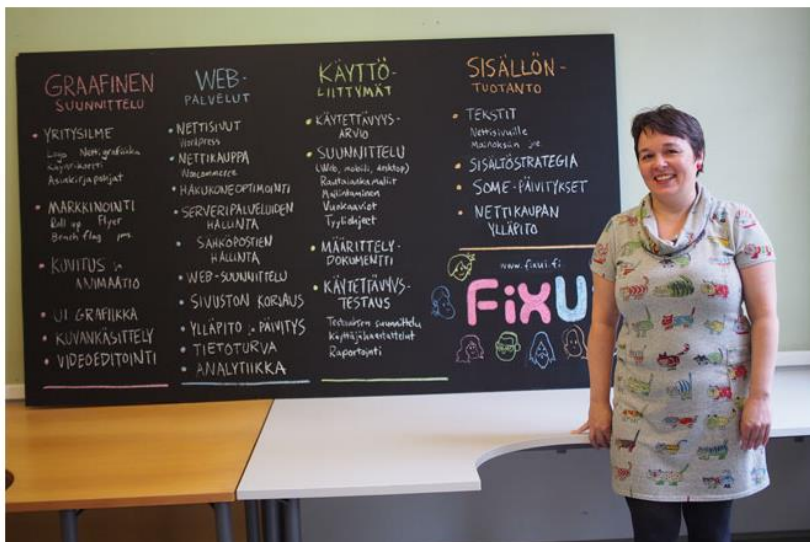 GRAAFINEN
SUUNNITTELU
• YRITYSILME
Logo Nettigrafiikka
Käyntikortti
Asiakirjapohjat
• MARKKINOINTI
Roll up Flyer
Beach flag yms.
• KUVITUS ja
ANIMAATIO
• UI GRAFIIKKA
• KUVANKÄSITTELY
• VIDEOEDITOINTI
WEB-
PALVELUT
• NETTISIVUT
Wordpress
• NETTIKAUPPA
Woocommerce
• HAKUKONEOPTIMOINTI
• SERVERIPALVELUIDEN
HALLINTA
• SÄHKÖPOSTIEN
HALLINTA
• WEB-SUUNNITTELU
• SIVUSTON KORJAUS
• YLLÄPITO ja PÄIVITYS
• TIETOTURVA
• ANALYTIIKKA
KÄYTTÖ-
LIITTYMÄT
• KÄYTETTÄVYYS-
ARVIO
• SUUNNITTELU
(Web, mobiili, desktop)
Rautalankamallit
Mallintaminen
Vuokaaviot
Tyyliohjeet
• MÄÄRITTELY-
DOKUMENTTI
• KÄYTETTÄVYYS-
TESTAUS
Testauksen suunnittelu
Käyttäjähaastattelut
Raportointi
SISÄLLÖN-
TUOTANTO
• TEKSTIT
Nettisivuille
Mainoksiin jne
• SISÄLTÖSTRATEGIA
• SOME-PÄIVITYKSET
• NETTIKAUPAN
YLLÄPITO
www.fixui.fi
FiXU